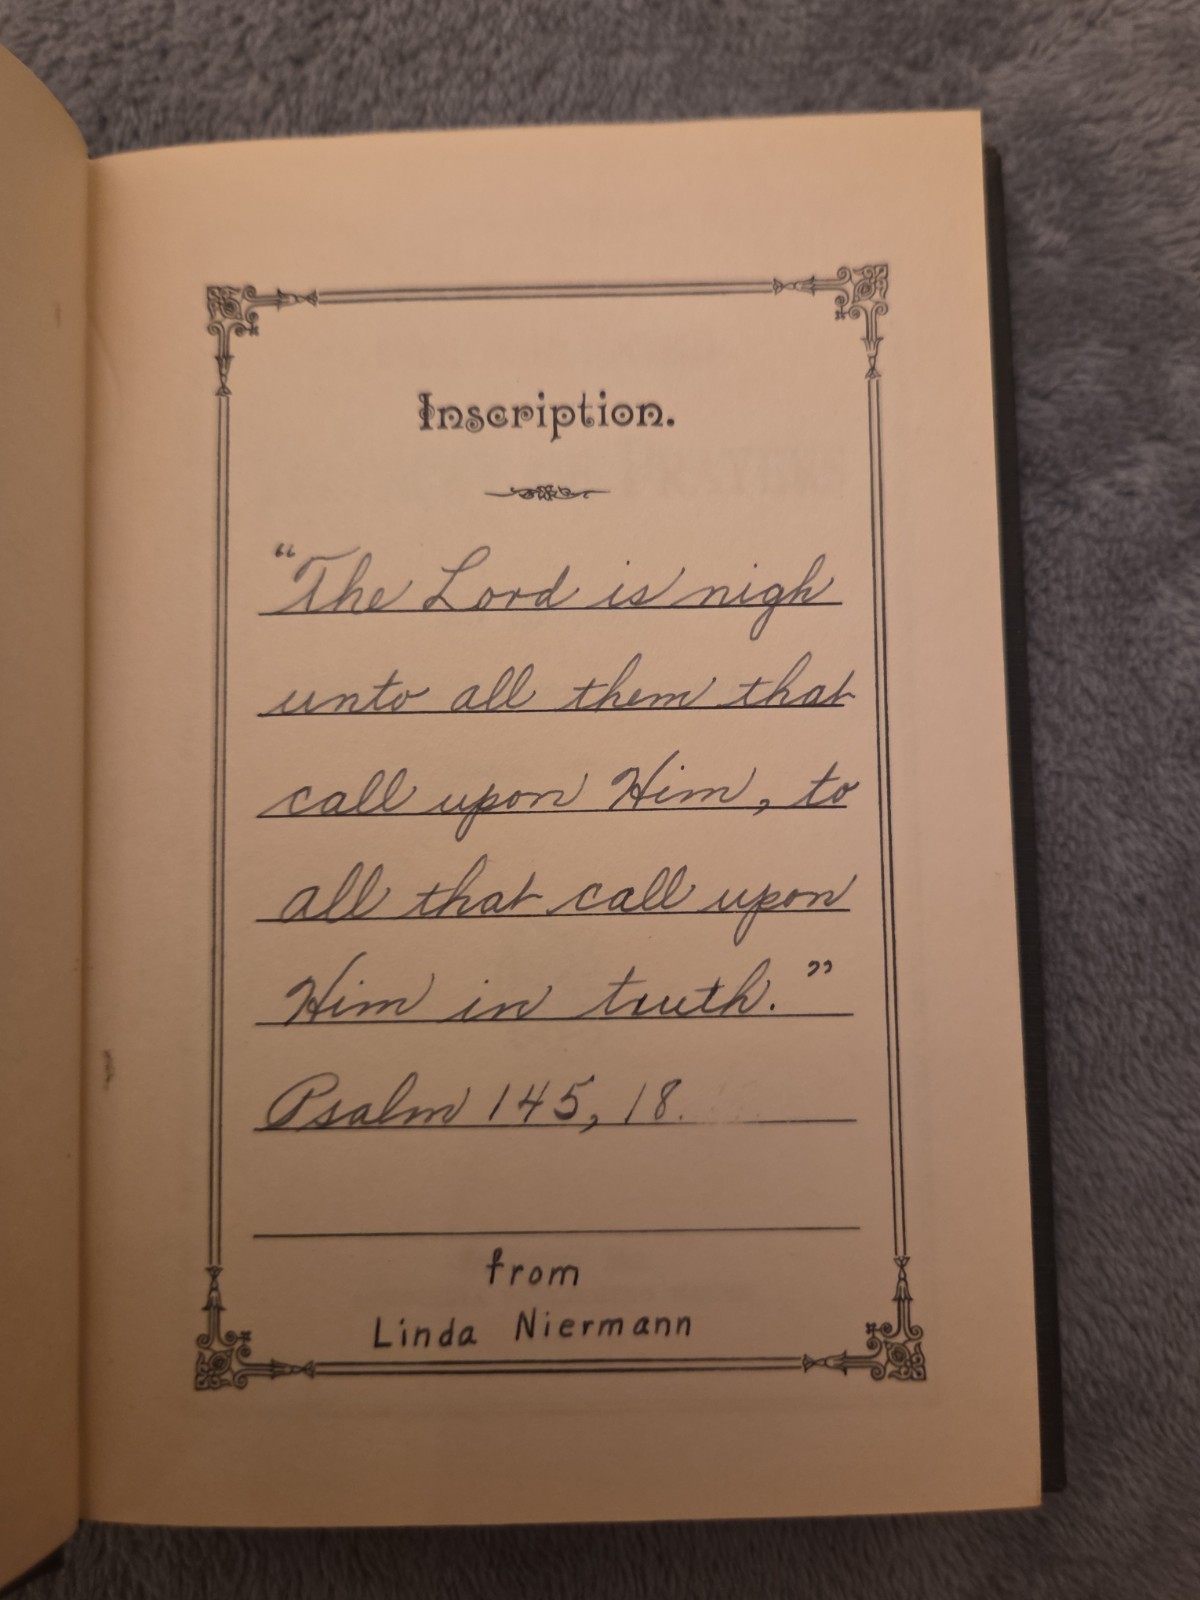 Inscription.
"The Lord is nigh
unto all them that
call upon Him, to
all that call upon
Him in truth."
Psalm 145, 18.
from
Linda Niermann